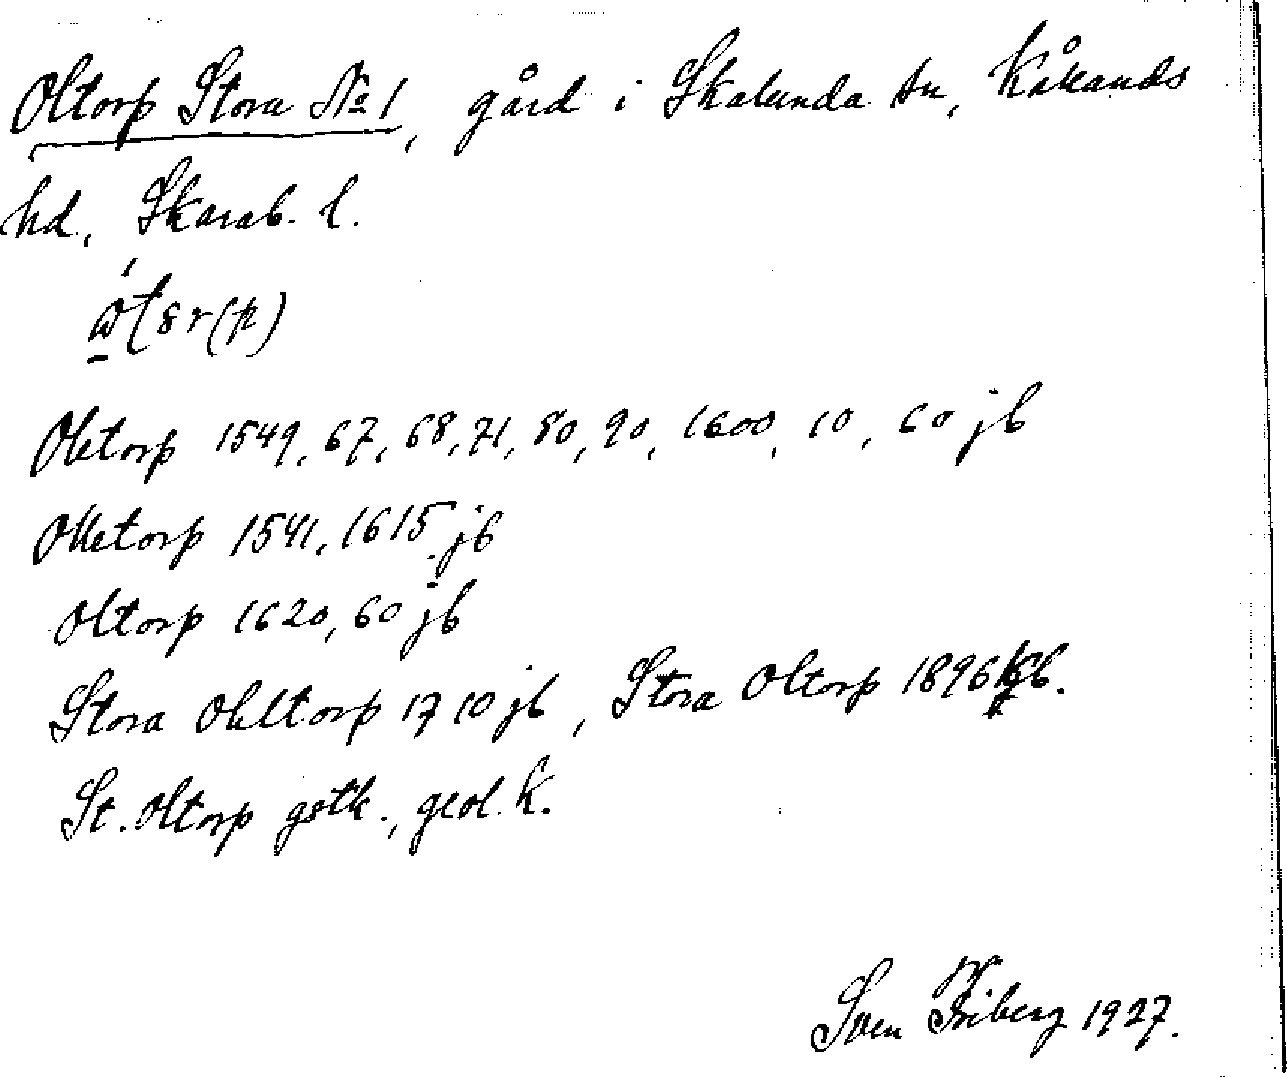 Oltorp Stora № 1, gård i Skalunda sn, Kållands
hd, Skarab. l.
Oletorp 1549, 67, 68, 71, 80, 90, 1600, 10, 60 jb
Olletorp 1541, 1615 jb
Oltorp 1620, 60 jb
Stora Ohltorp 1710 jb, Stora Oltorp 1896 jb.
St. Oltorp gstk., geol. k.
Sven Friberg 1927.